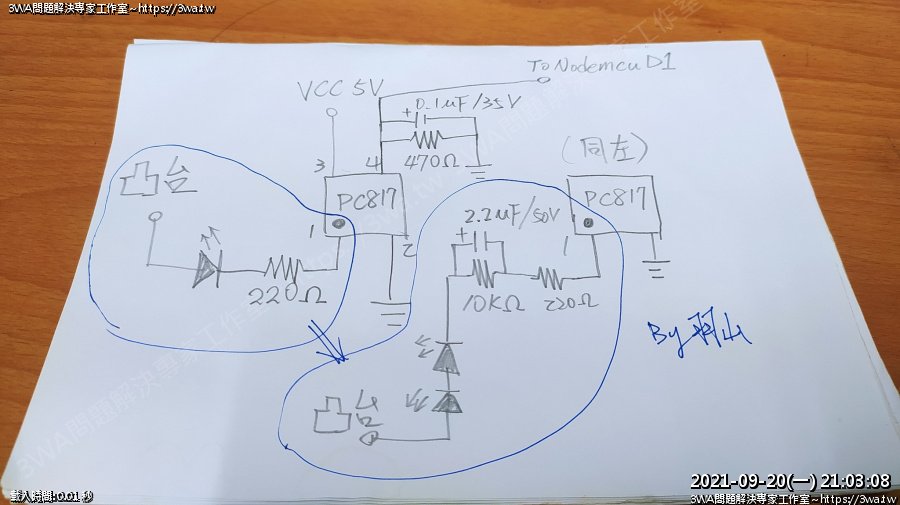 3WA問題解決專家工作室~https://3wa.tw
To Nodemcu D1
VCC 5V
+ 0.1uF/35V
3
4
470Ω
(同左)
凸台
PC817
PC817
1
2
2.2uF/50V
+
1
220Ω
10KΩ
220Ω
By 羽山
凸台
2021-09-20(一) 21:03:08
載入時間:0.01 秒
3WA問題解決專家工作室~https://3wa.tw